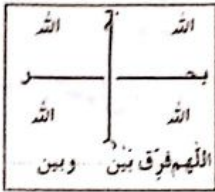 الله الله
بحـــــر
الله الله
اللهم فرّق بين وبين